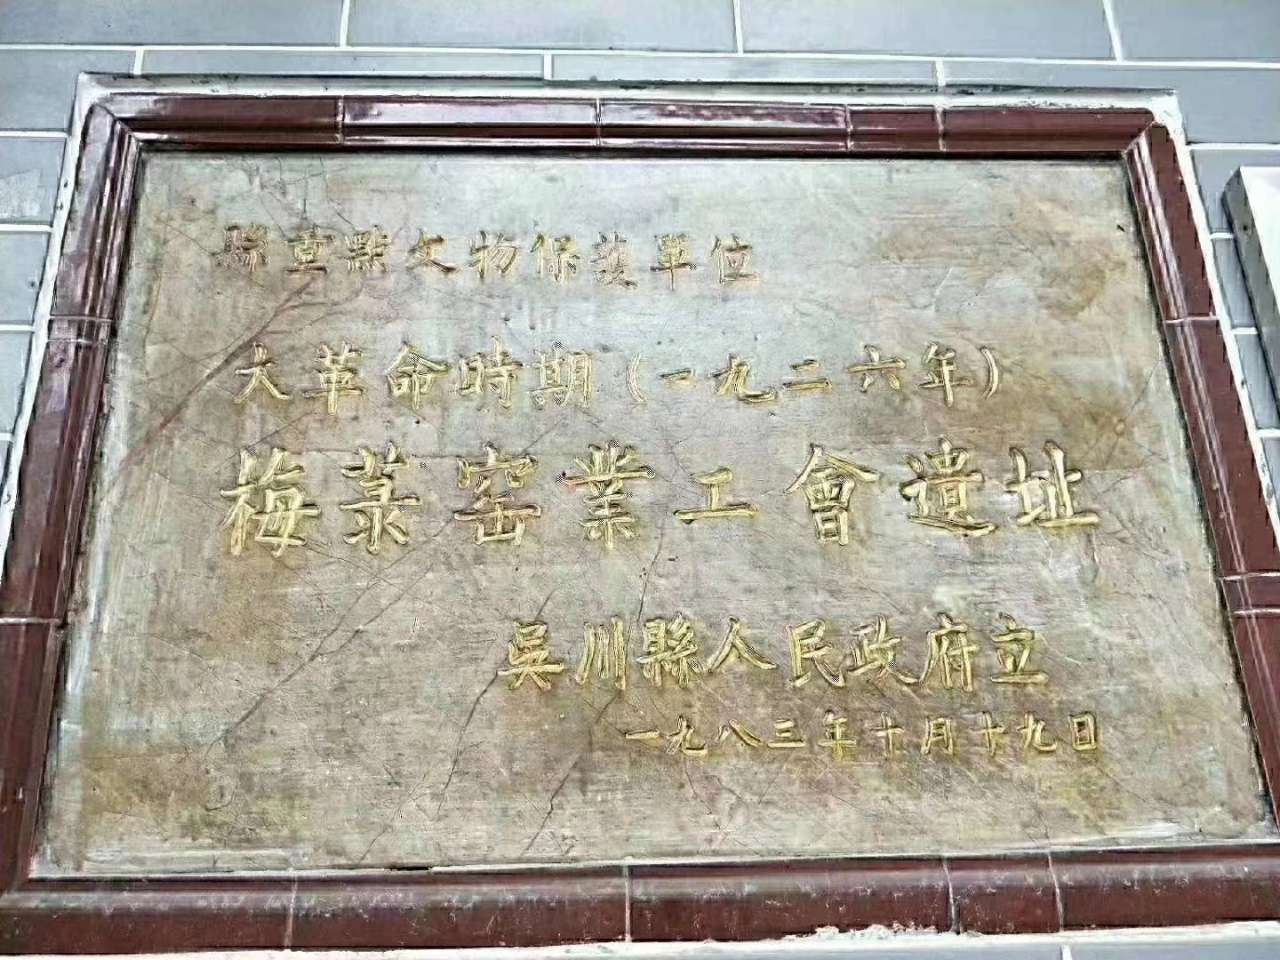 縣重點文物保護單位
大革命時期(一九二六年)
梅菉窑業工會遺址
吳川縣人民政府立
一九八三年十月十九日